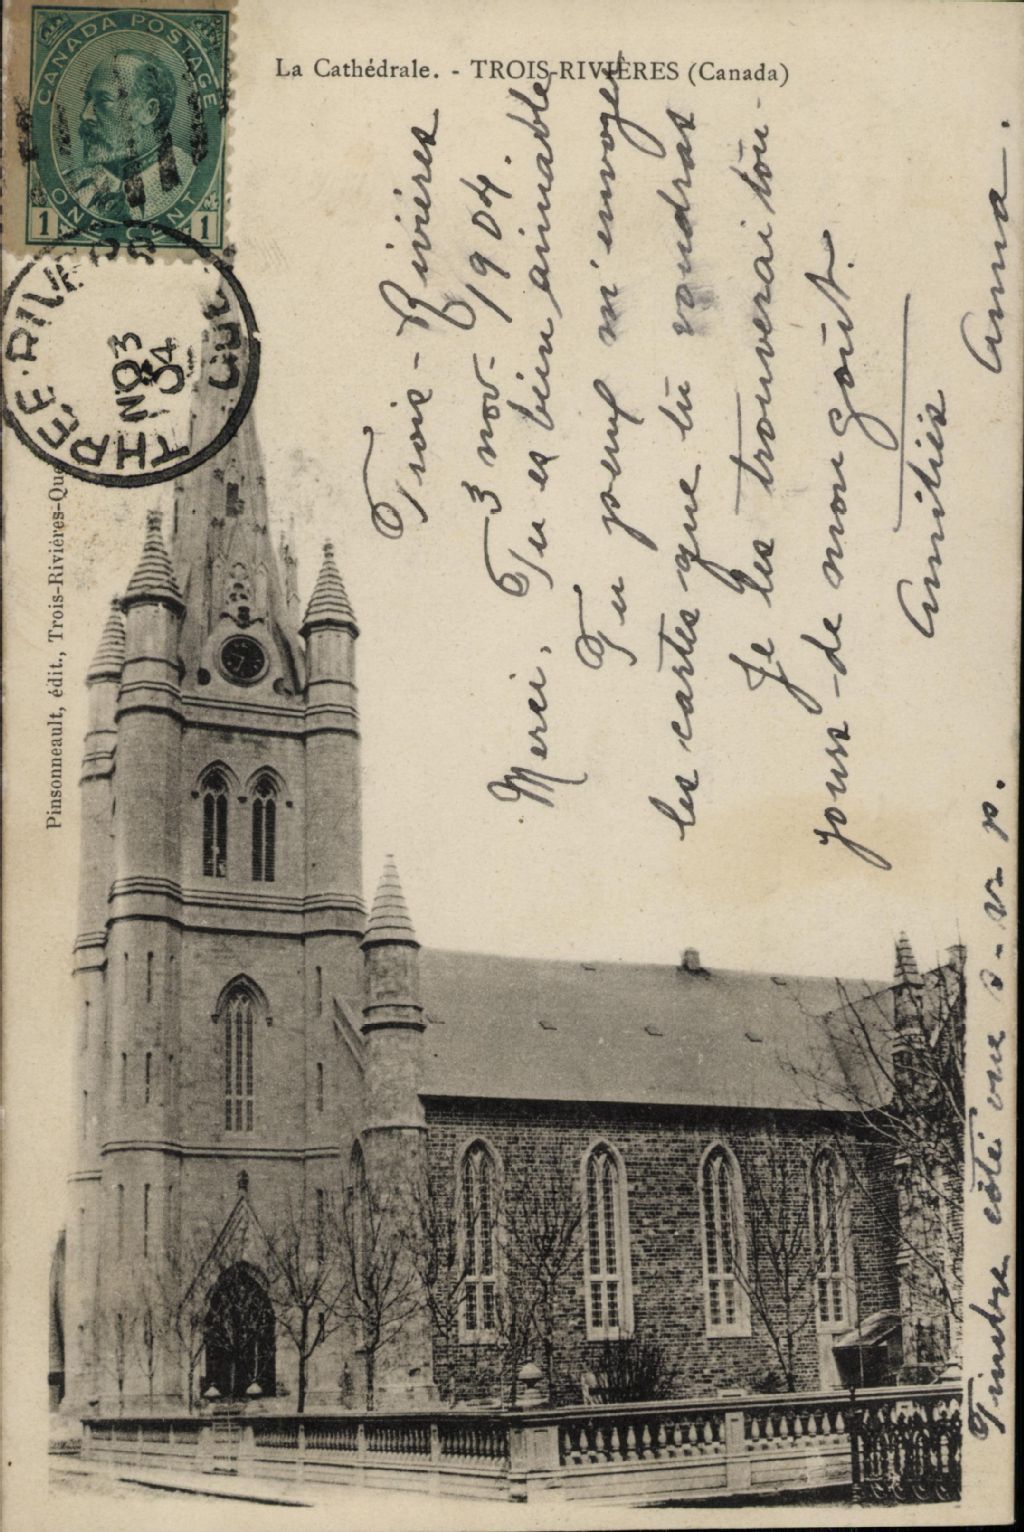 CANADA POSTAGE
1 ONE CENT 1
La Cathédrale. - TROIS-RIVIÈRES (Canada)
THREE RIVERS
NO 3
04
QUE
Pinsonneault, édit., Trois-Rivières-Que
Trois-Rivières
3 nov- 1904.
Merci, Tu es bien aimable
Tu peux m'envoyer
les cartes que tu voudras
Je les trouverai tou-
jours-de mon goût.
Amitiés
Anna.
Timbre côté vue s-v-p.